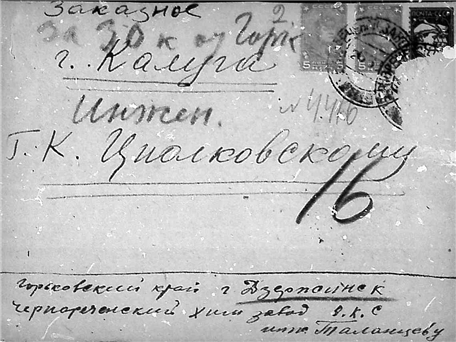 Заказное
2
За 30 к
г. Калуга
Инжен.
Г. К. Циолковскому
16
Горьковский край г Дзержинск
Чернореченский хим завод О.К.С
инж. Таланцеву